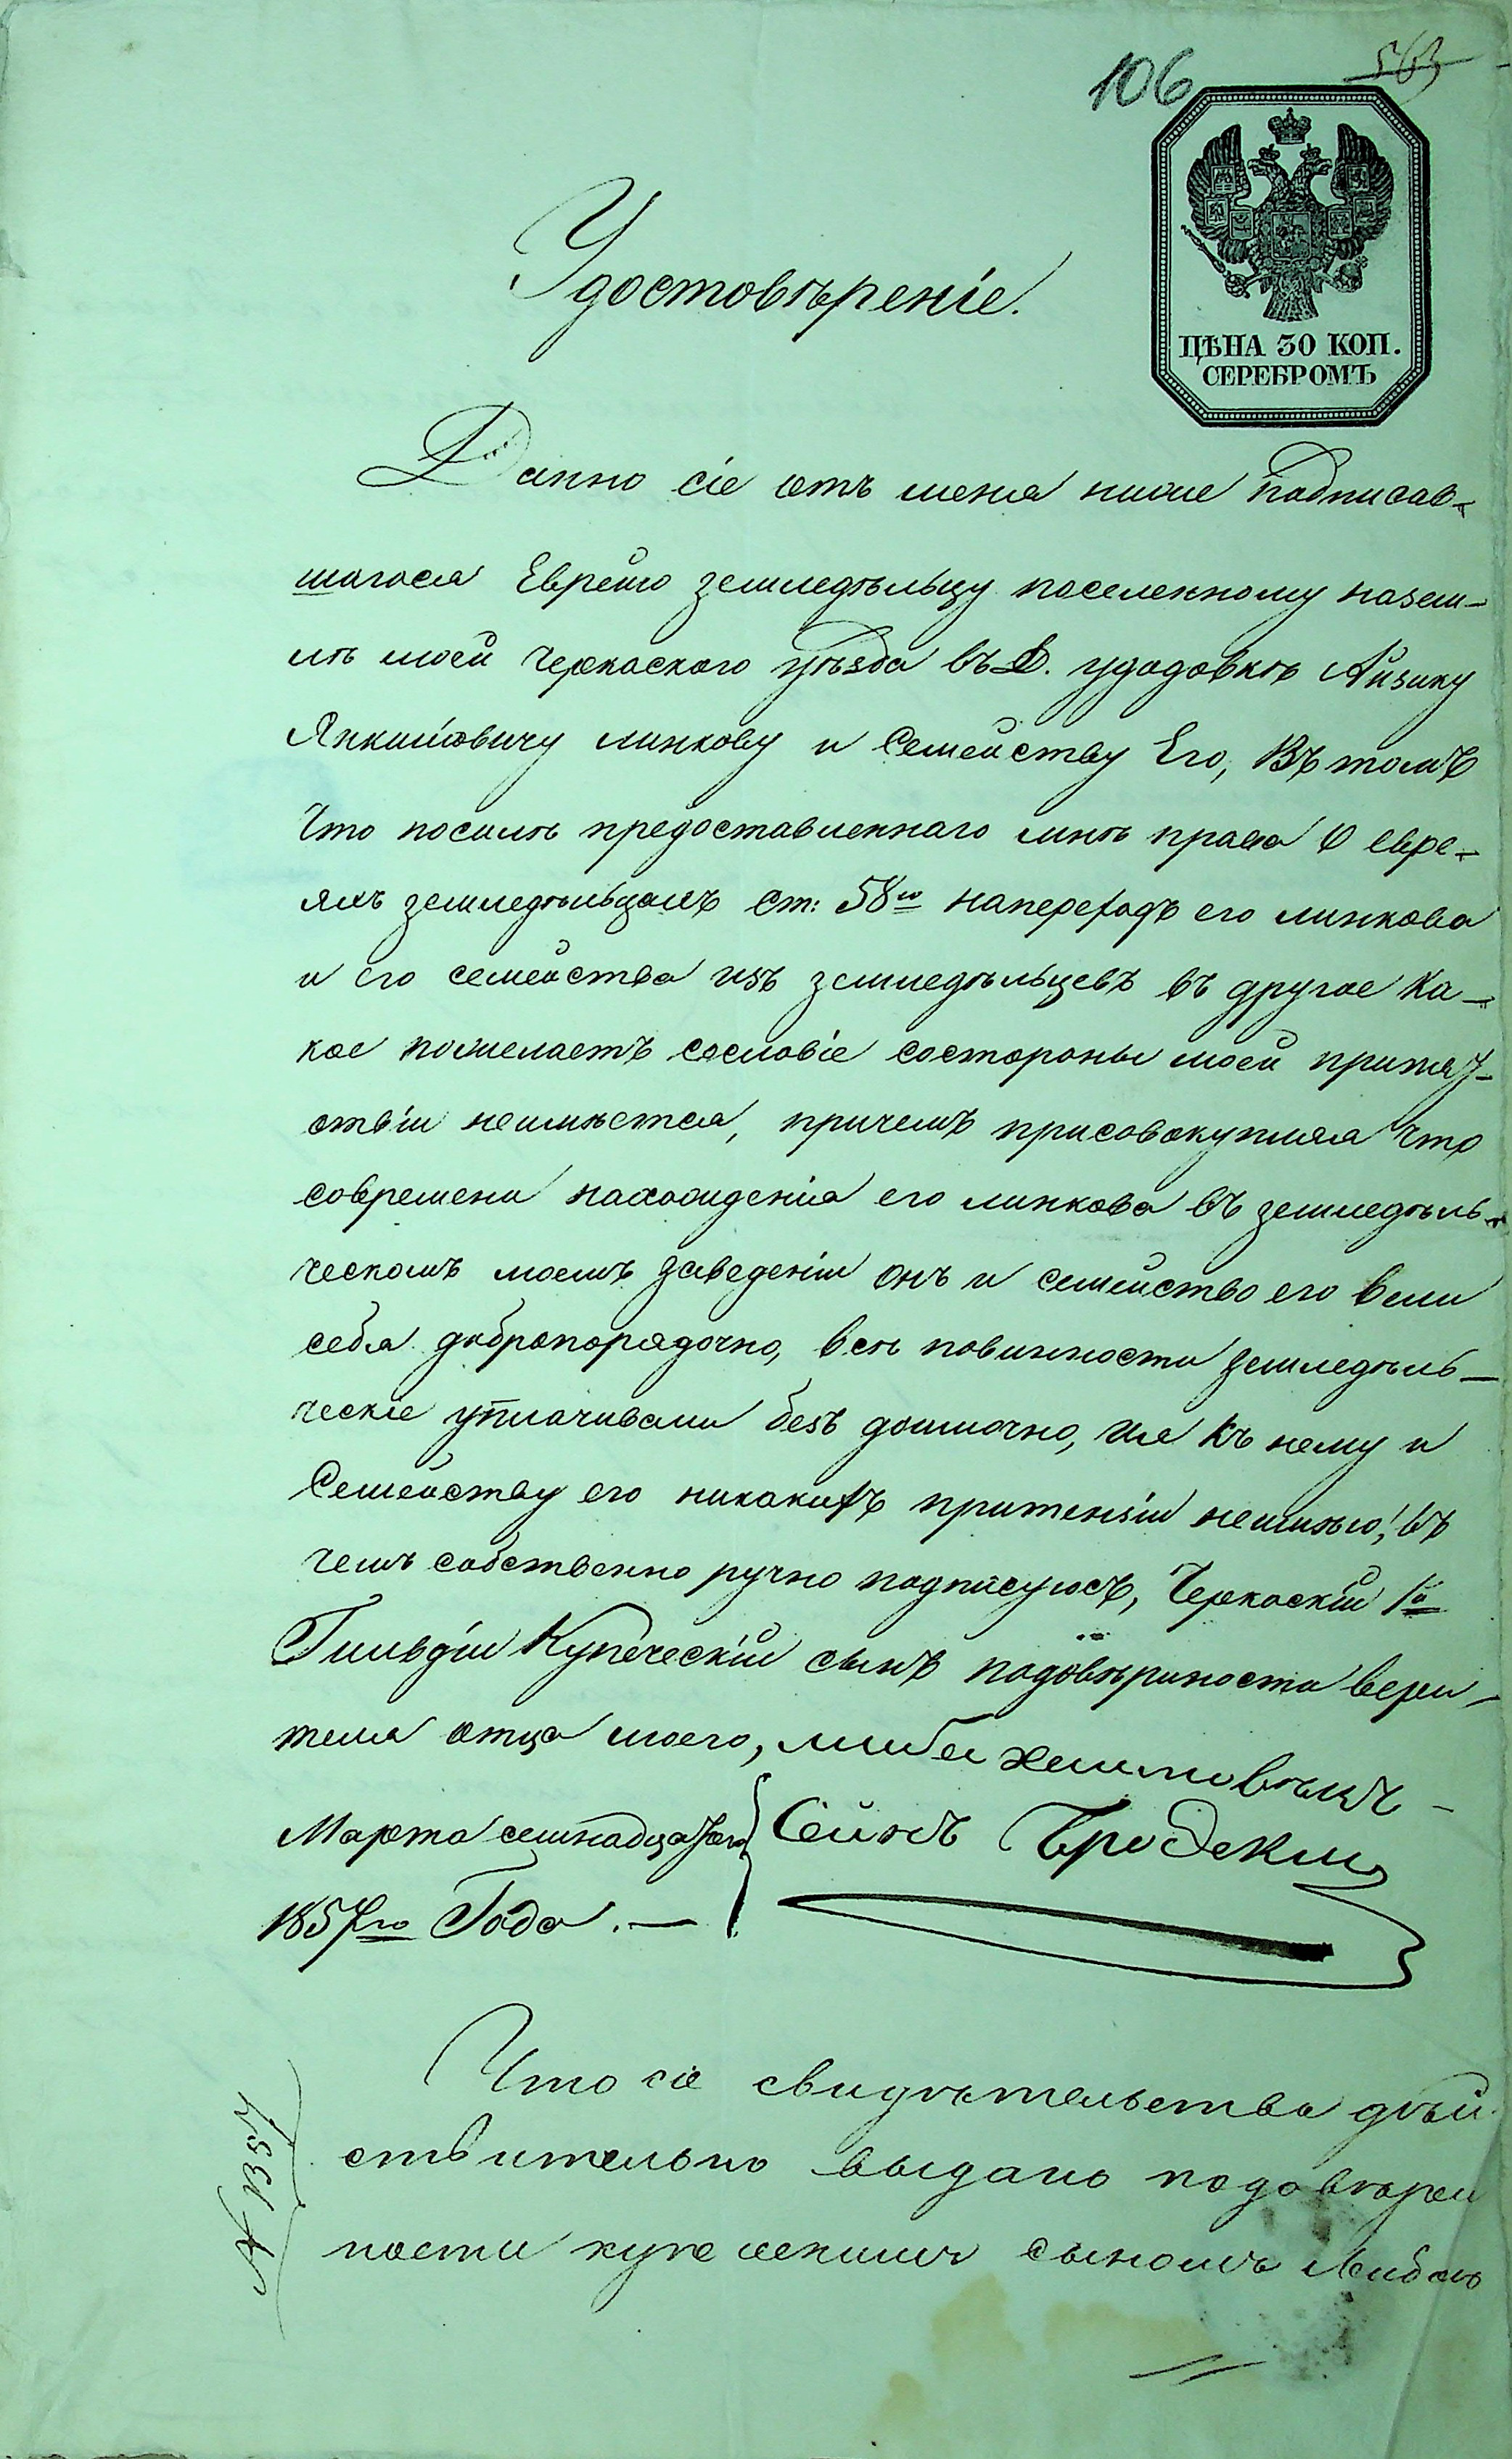 106
563
ЦѢНА 30 КОП.
СЕРЕБРОМЪ
Удостовѣреніе.
Данно сіе отъ меня ниже подписав-
шагося Еврею земледѣльцу поселенному назем-
лѣ моей Черкаского уѣзда въ Д. удодовкѣ Айзику
Янкилёвичу линкову и Семейству Его, Въ томъ
Что посилѣ предоставленнаго мнѣ права о евре-
яхъ земледѣльцахъ ст: 58ю напереходъ его линкова
и его семейства изъ земледѣльцевъ въ другое ка-
кое пожелаетъ сословіе состороны моей притят-
ствіи неимѣется, причемъ присовокупляя что
современи нахождения его линкова въ земледѣль-
ческомъ моемъ заведеніи онъ и семейство его вели
себя добропорядочно, всѣ повинности земледѣль-
ческіе уплачивали безъ доимочно, и я къ нему и
Семейству его никакихъ притензіи неимѣю, въ
чемъ собственно ручно подписуюсъ, Черкаскій 1й
Гильдіи Купеческій сынъ
отца моего, либа
Марта семнадцатого Бродскій
1857го Года. —
Что сіе свидѣтельство дѣй
ствительно выдано подовѣрен
ности купеческимъ сыномъ Либомъ
№ 1357